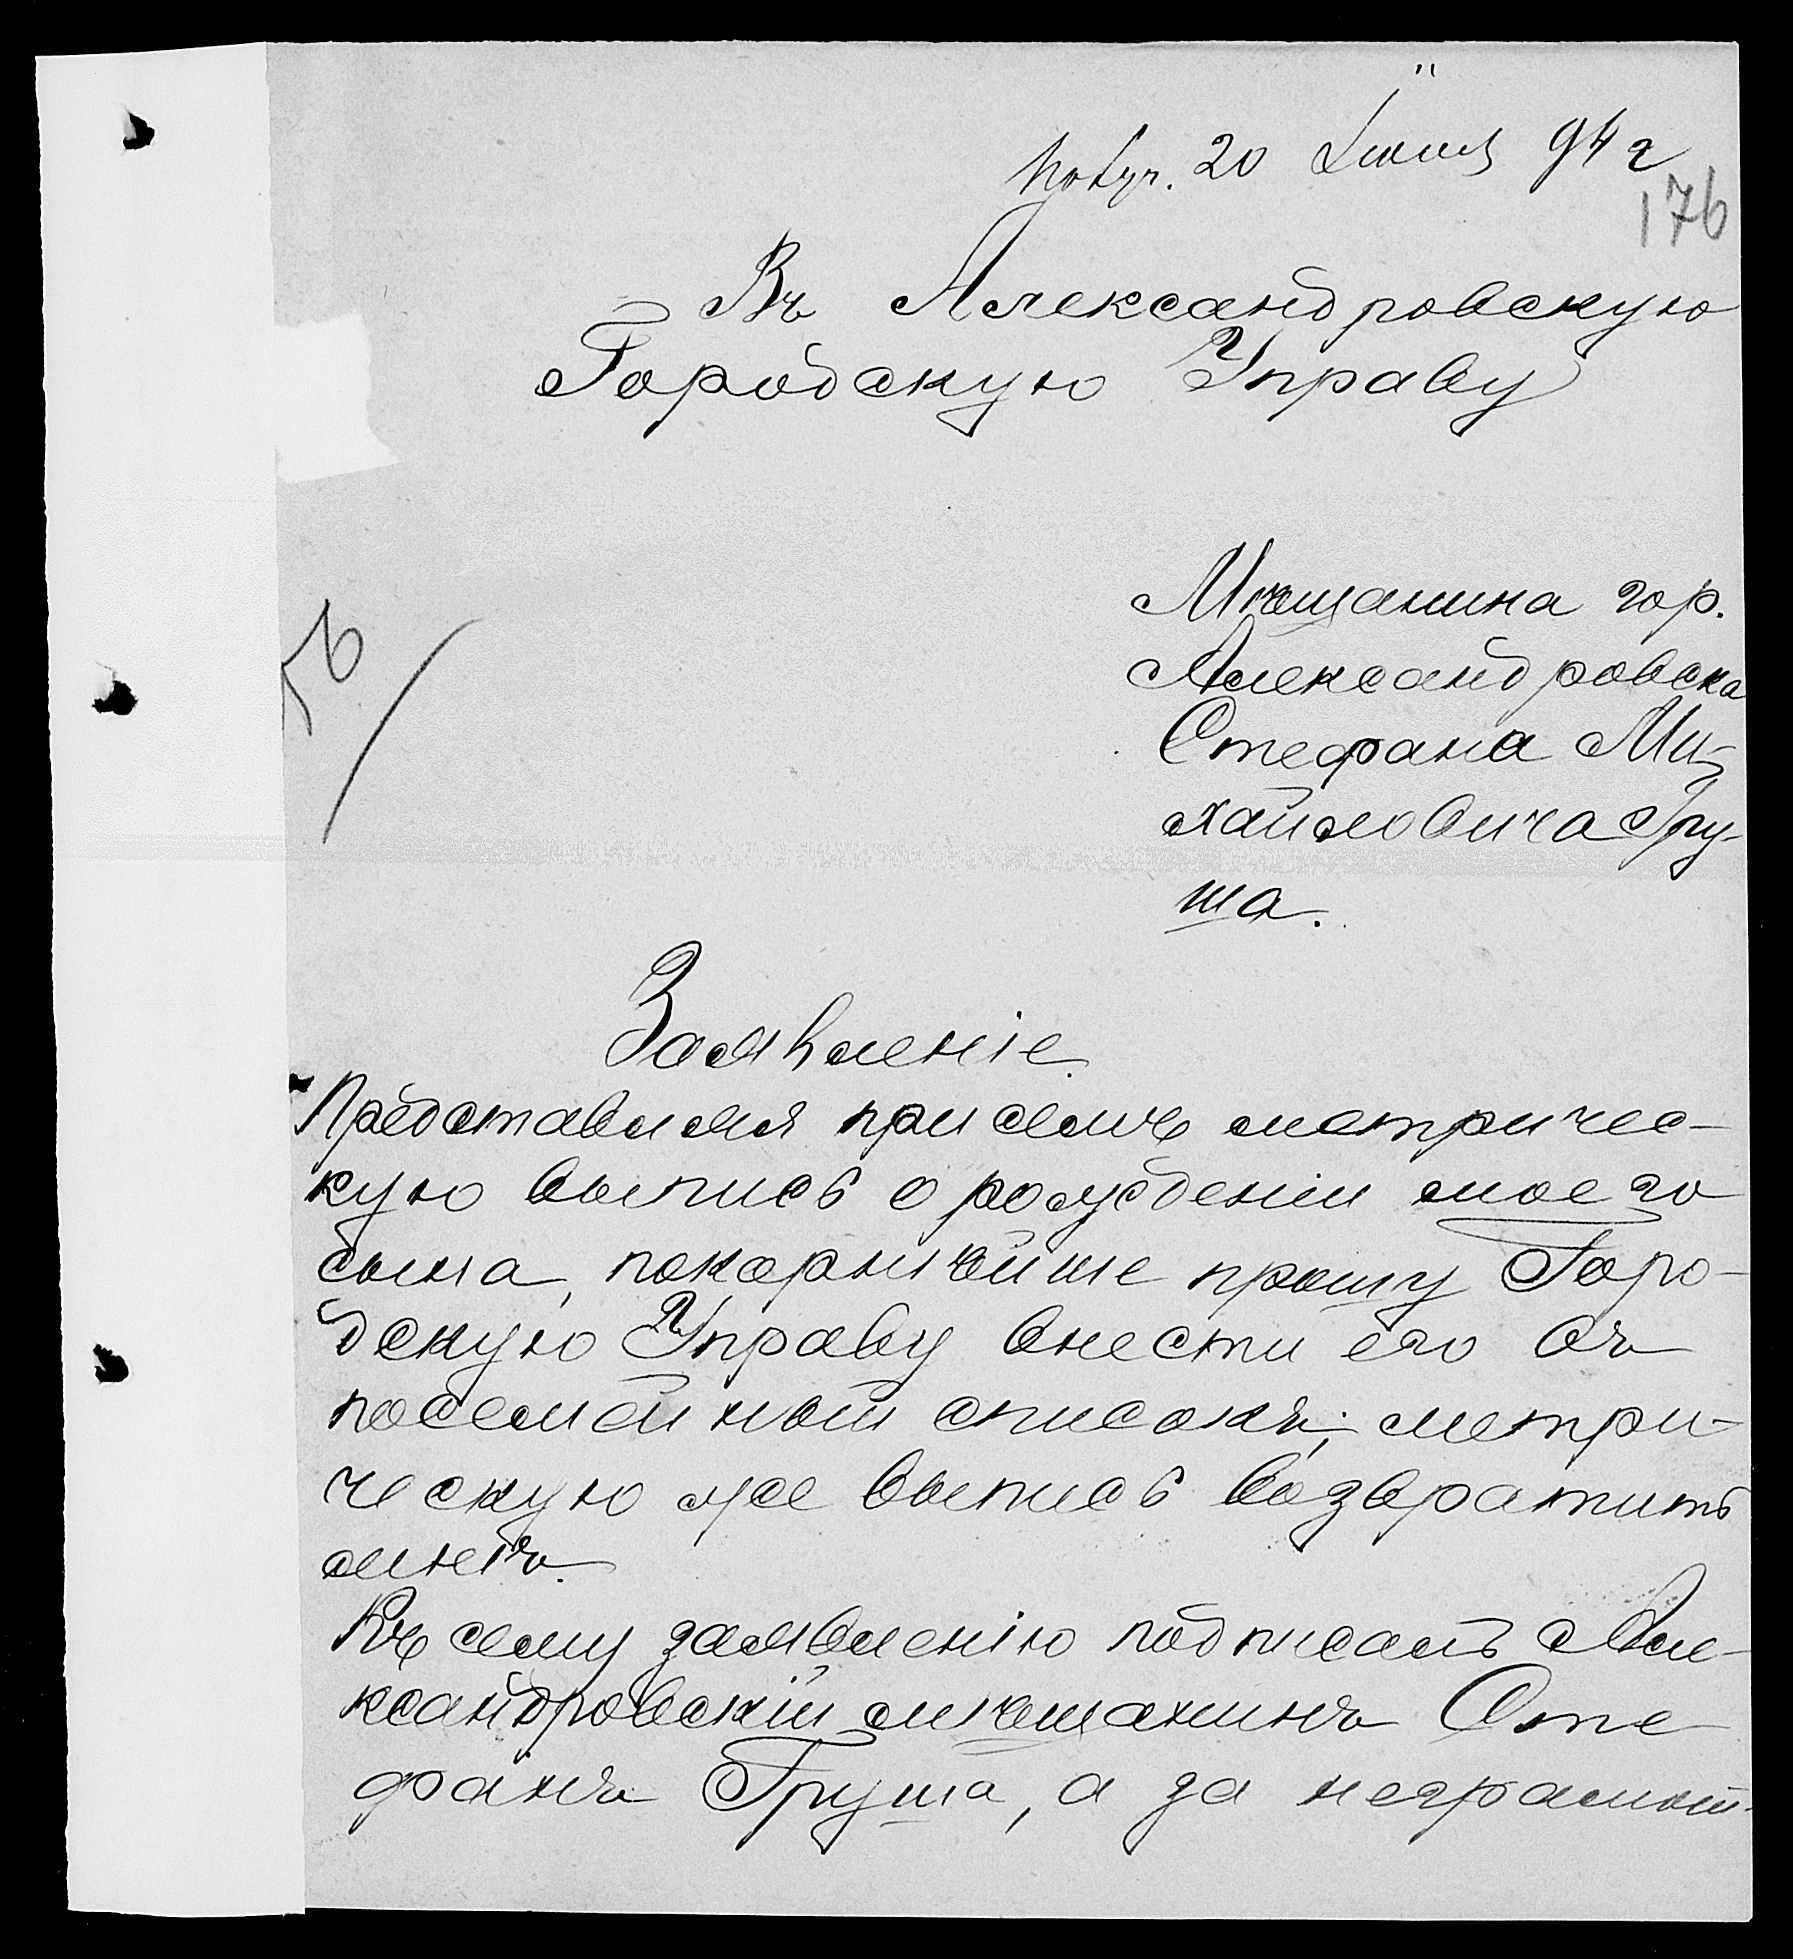 Получ. 20 Июня 94 г
176
Въ Александровскую
Городскую Управу
Мѣщанина гор.
Александровска
Стефана Ми-
хайловича Гру-
ша.
Заявленіе.
Представляя при семъ метричес-
кую выпись о рожденіи моего
сына, покорнѣйше прошу Горо-
дскую Управу внести его въ
посемейный списокъ; метри-
ческую же выпись возвратить
мнѣ.
Къ сему заявленію подписалъ Але-
ксандровскій мѣщанинъ Сте
фанъ Груша, а за неграмот-